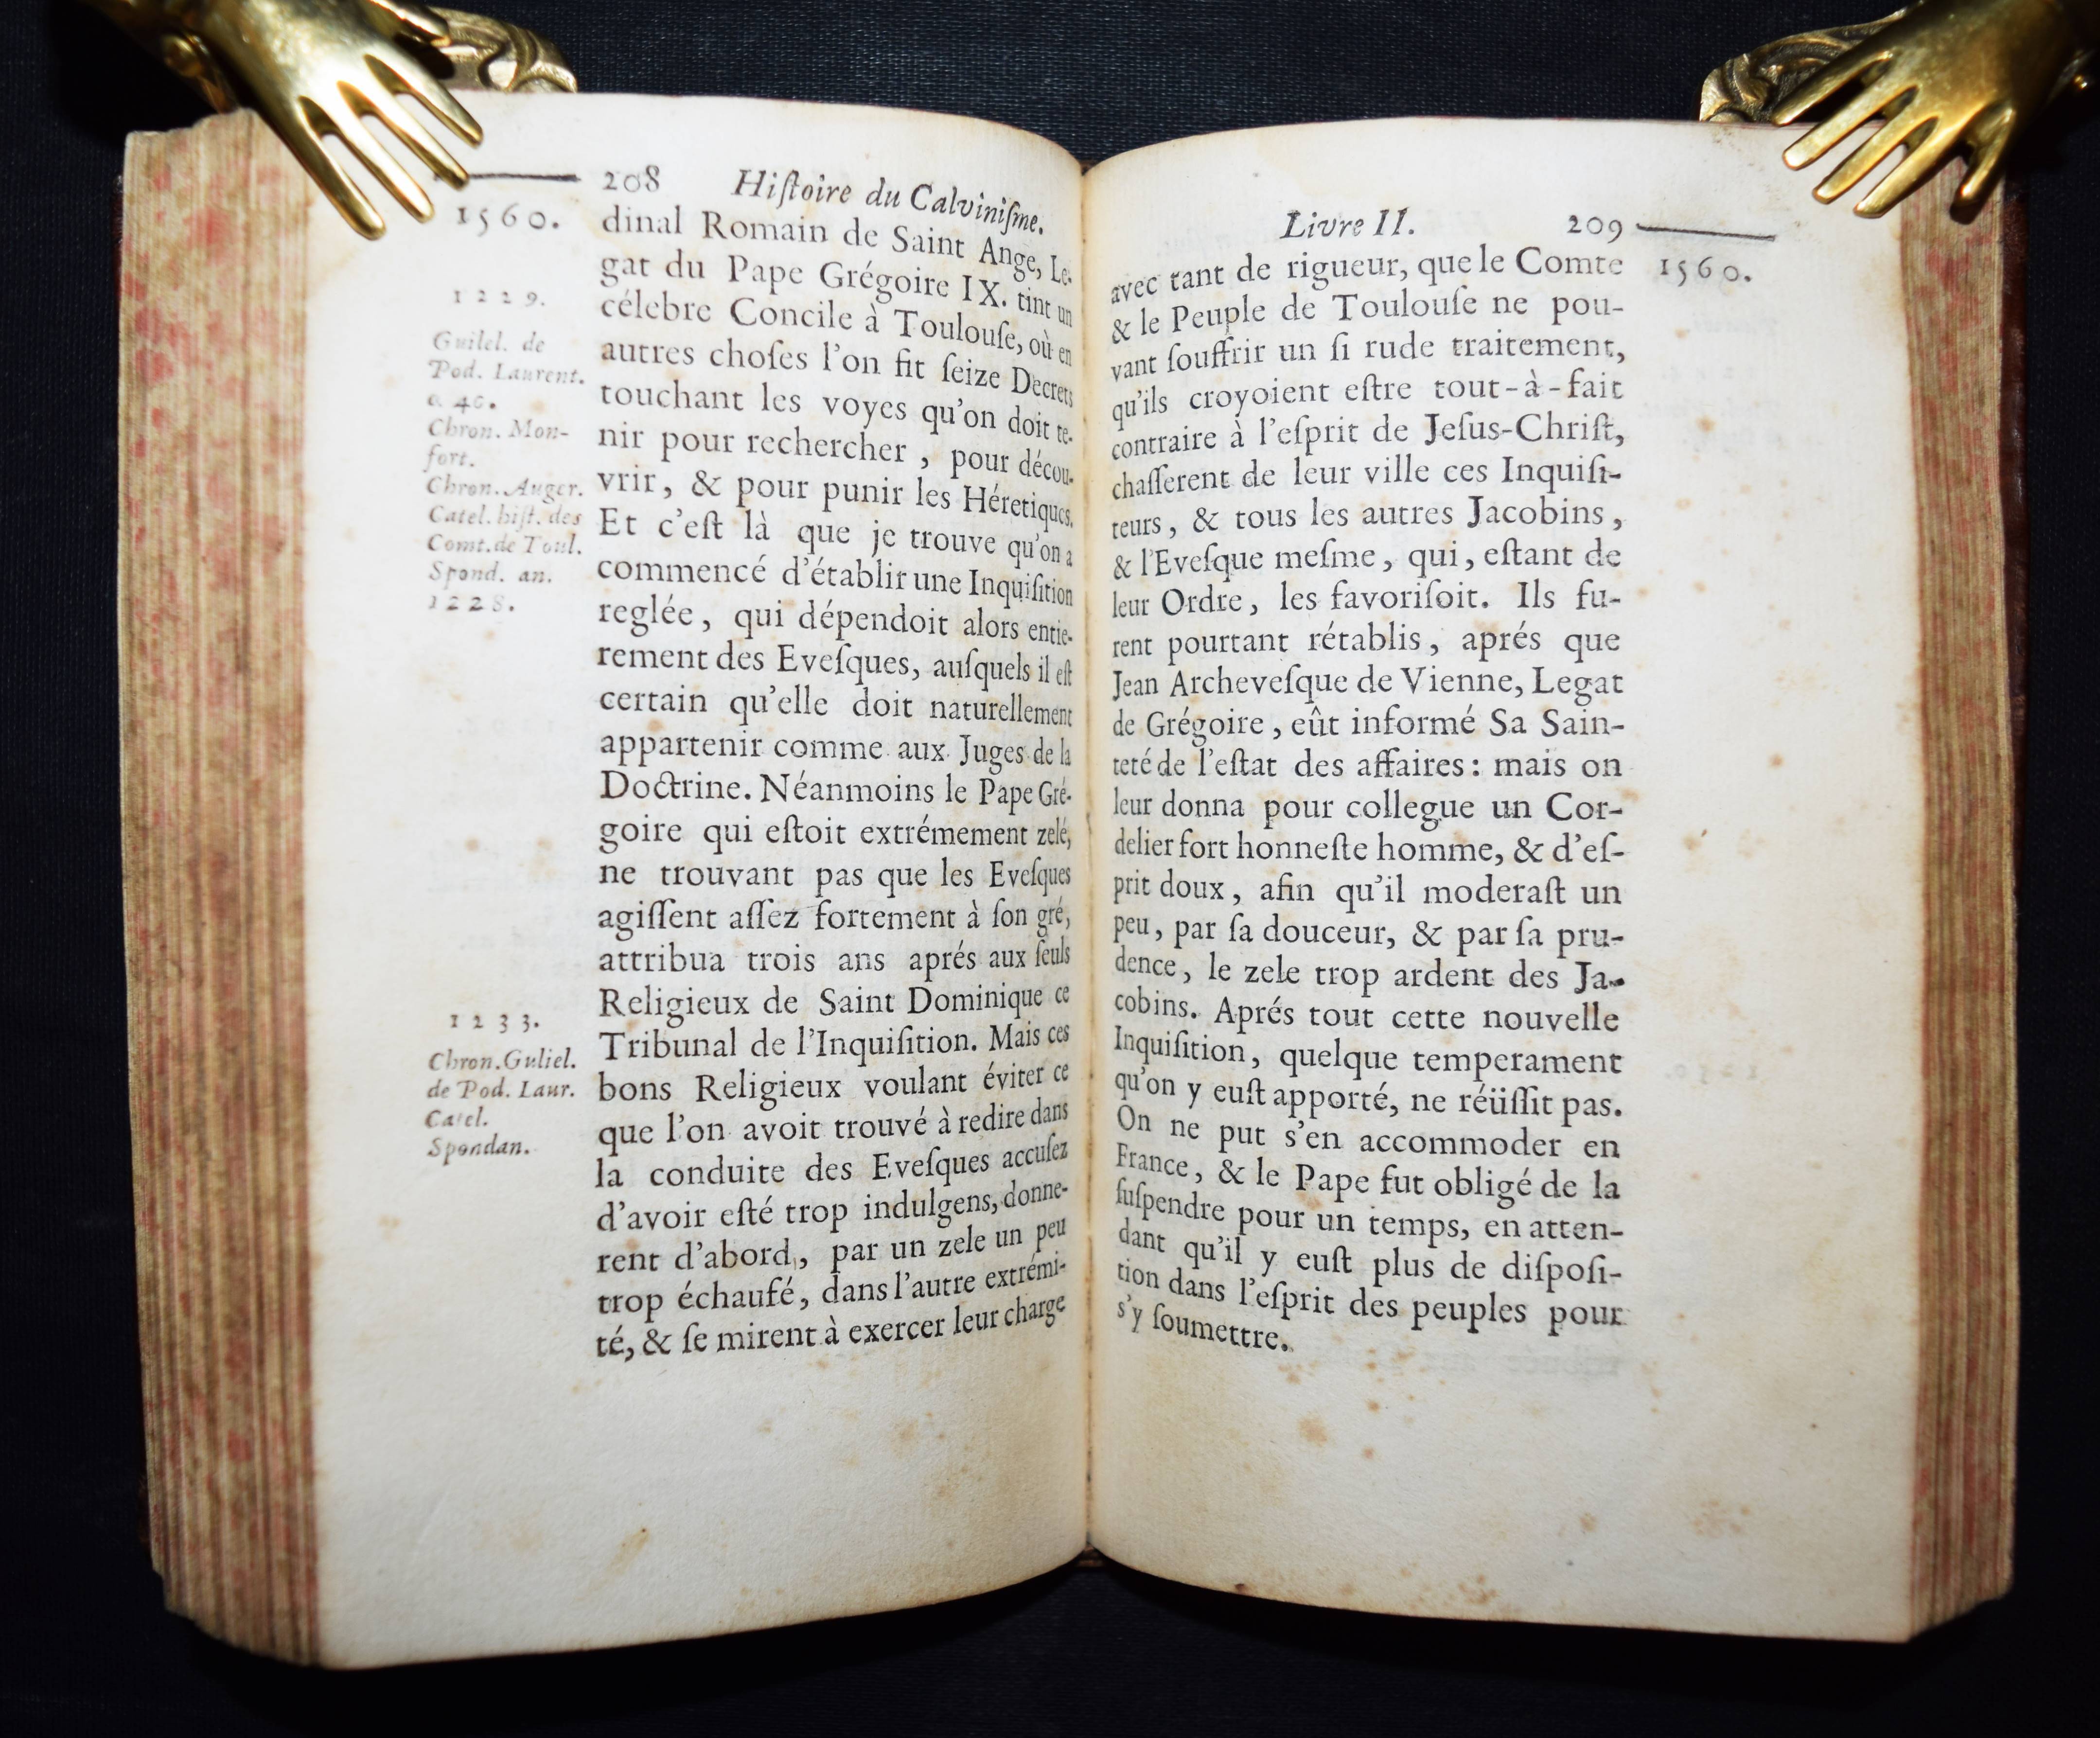 208 Hiſtoire du Calviniſme.
1560.
dinal Romain de Saint Ange, Le-
gat du Pape Grégoire IX. tint un
célebre Concile à Toulouſe, où en
autres choſes l'on fit ſeize Decrets
touchant les voyes qu'on doit te-
nir pour rechercher, pour décou-
vrir, & pour punir les Héretiques.
Et c'eſt là que je trouve qu'on a
commencé d'établir une Inquiſition
reglée, qui dépendoit alors entie-
rement des Eveſques, auſquels il eſt
certain qu'elle doit naturellement
appartenir comme aux Juges de la
Doctrine. Néanmoins le Pape Gré-
goire qui eſtoit extrémement zelé,
ne trouvant pas que les Eveſques
agiſſent aſſez fortement à ſon gré,
attribua trois ans aprés aux ſeuls
Religieux de Saint Dominique ce
Tribunal de l'Inquiſition. Mais ces
bons Religieux voulant éviter ce
que l'on avoit trouvé à redire dans
la conduite des Eveſques accuſez
d'avoir eſté trop indulgens, donne-
rent d'abord, par un zele un peu
trop échaufé, dans l'autre extrémi-
té, & ſe mirent à exercer leur charge
1229.
Guilel. de
Pod. Laurent.
c. 40.
Chron. Mon-
fort.
Chron. Auger.
Catel. hiſt. des
Comt. de Toul.
Spond. an.
1228.
1233.
Chron. Guliel.
de Pod. Laur.
Catel.
Spondan.
Livre II. 209
1560.
avec tant de rigueur, que le Comte
& le Peuple de Toulouſe ne pou-
vant ſouffrir un ſi rude traitement,
qu'ils croyoient eſtre tout-à-fait
contraire à l'eſprit de Jeſus-Chriſt,
chaſſerent de leur ville ces Inquiſi-
teurs, & tous les autres Jacobins,
& l'Eveſque meſme, qui, eſtant de
leur Ordre, les favoriſoit. Ils fu-
rent pourtant rétablis, aprés que
Jean Archeveſque de Vienne, Legat
de Grégoire, eût informé Sa Sain-
teté de l'eſtat des affaires: mais on
leur donna pour collegue un Cor-
delier fort honneſte homme, & d'eſ-
prit doux, afin qu'il moderaſt un
peu, par ſa douceur, & par ſa pru-
dence, le zele trop ardent des Ja-
cobins. Aprés tout cette nouvelle
Inquiſition, quelque temperament
qu'on y euſt apporté, ne réüſſit pas.
On ne put s'en accommoder en
France, & le Pape fut obligé de la
ſuſpendre pour un temps, en atten-
dant qu'il y euſt plus de diſpoſi-
tion dans l'eſprit des peuples pour
s'y ſoumettre.